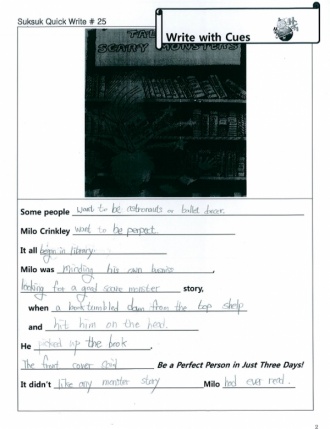 Suksuk Quick Write # 25
Write with Cues
SCARY MONSTERS
Some people want to be astronauts or ballet
Milo Crinkley want to be perpect
It all began in library.
Milo was minding his own
looking for a good scare monster story,
when a book tumbled down from the top shelp
and hit him on the head.
He picked up the book,
The front cover said Be a Perfect Person in Just Three Days!
It didn't like any monster story Milo had ever read.
2